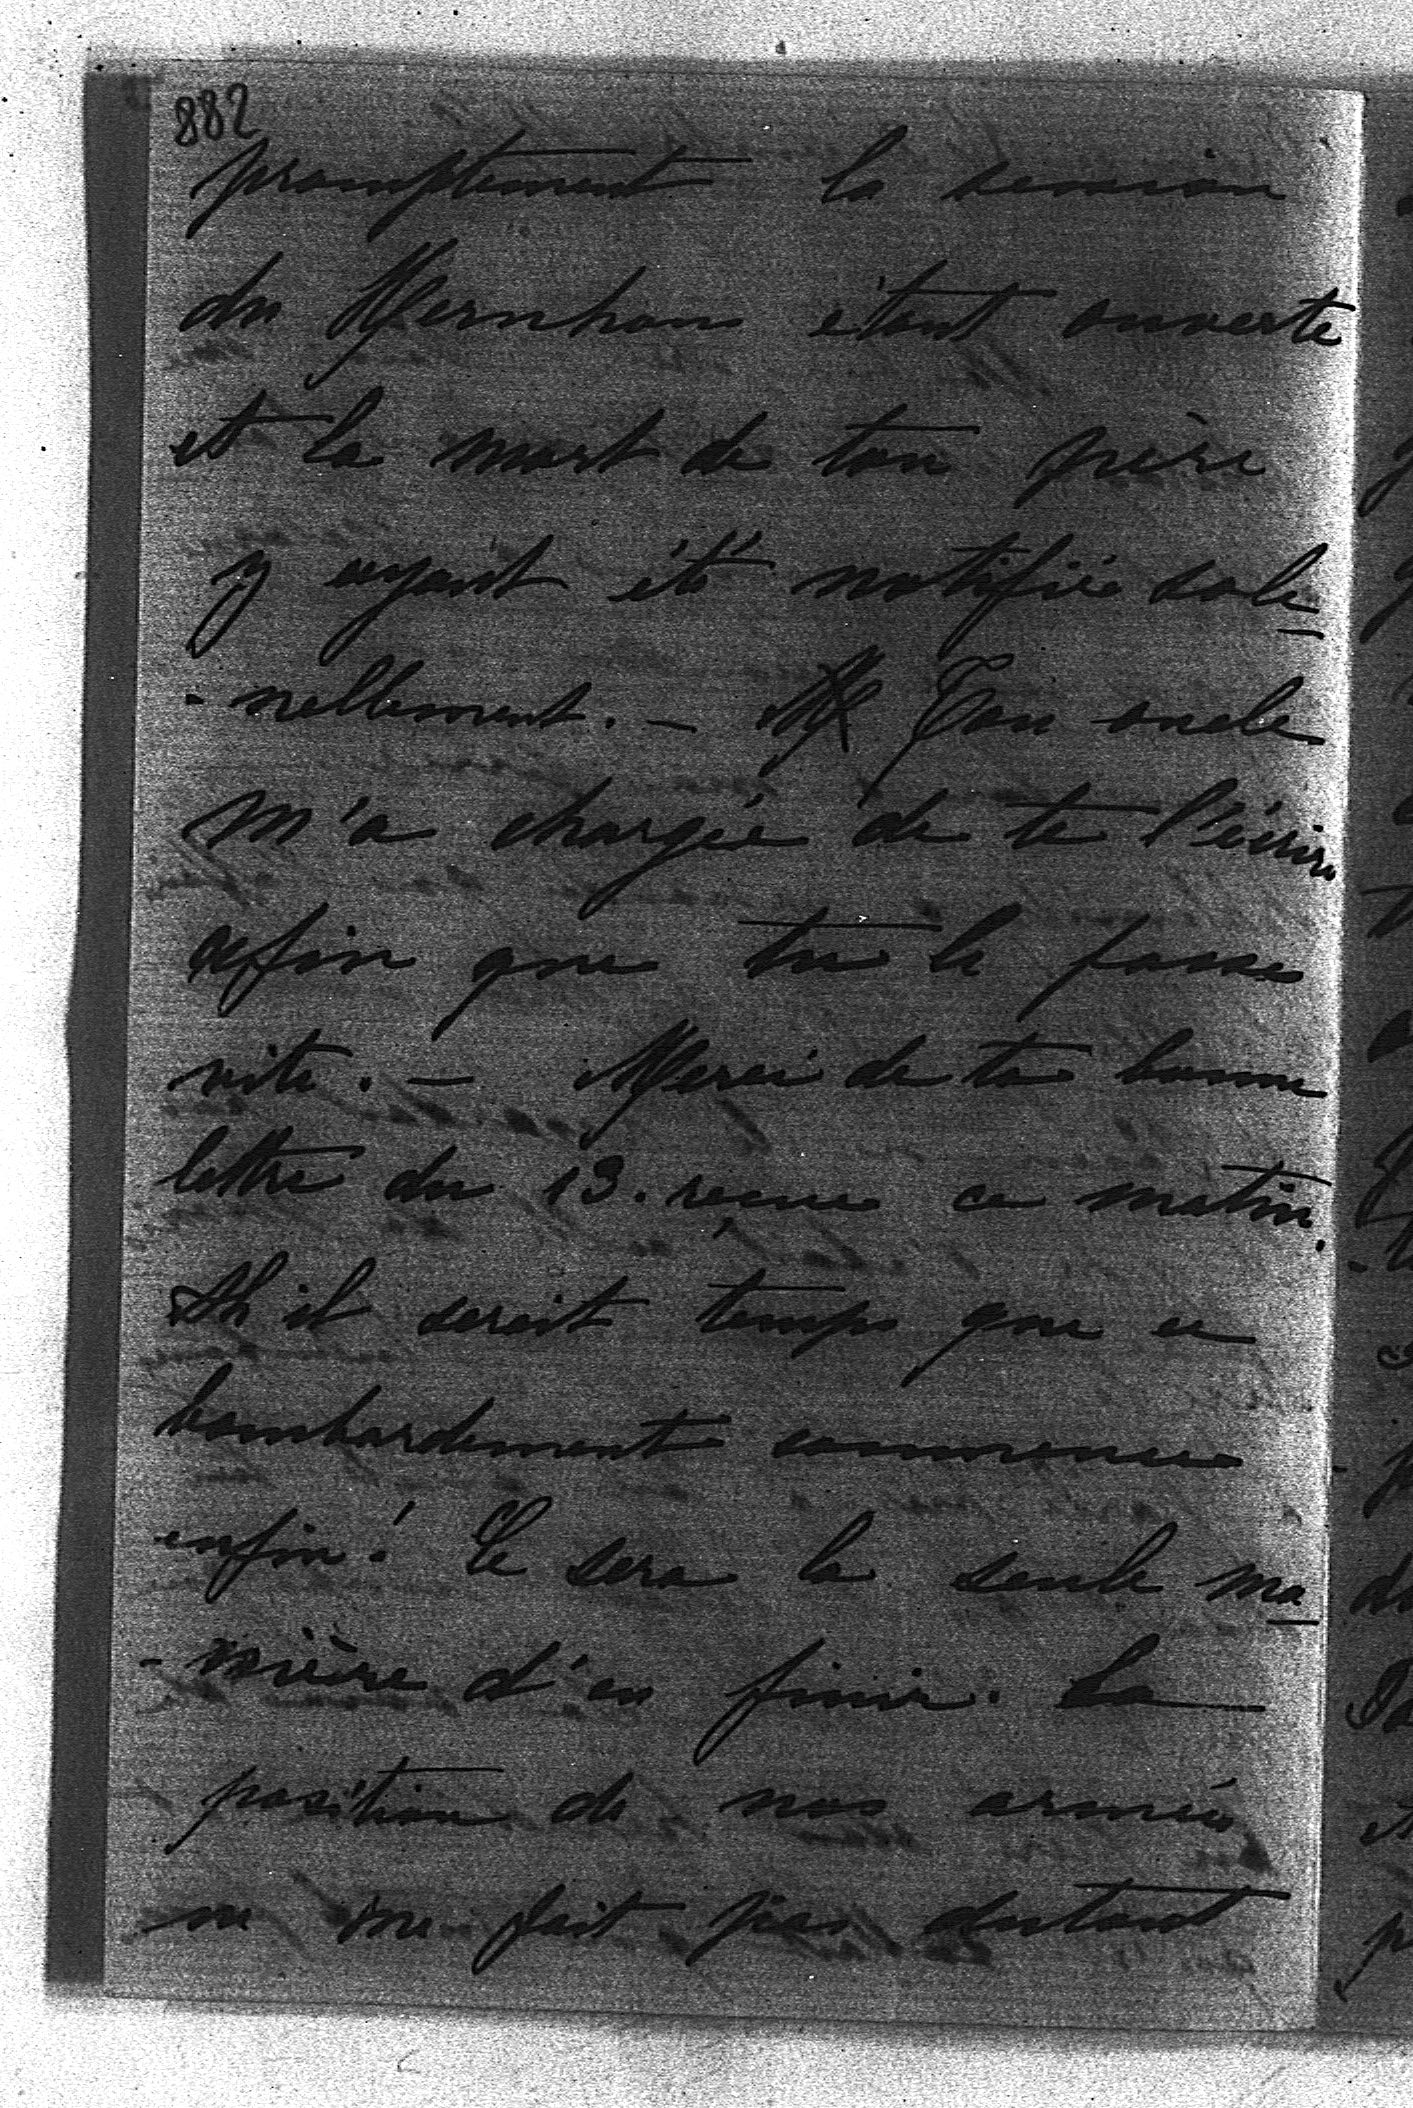 882
promptement la session
du Herrnhaus étant ouverte
et la mort de ton père
y ayant été notifiée sole-
-nellement. - Ton oncle
m'a chargée de te l'écrire
afin que tu le fasses
vite. - Merci de ta bonne
lettre du 13. reçue ce matin.
Ah il serait temps que ce
bombardement commence
enfin! Ce sera la seule ma-
-nière d'en finir. La
position de nos armées
ne me fait pas autant